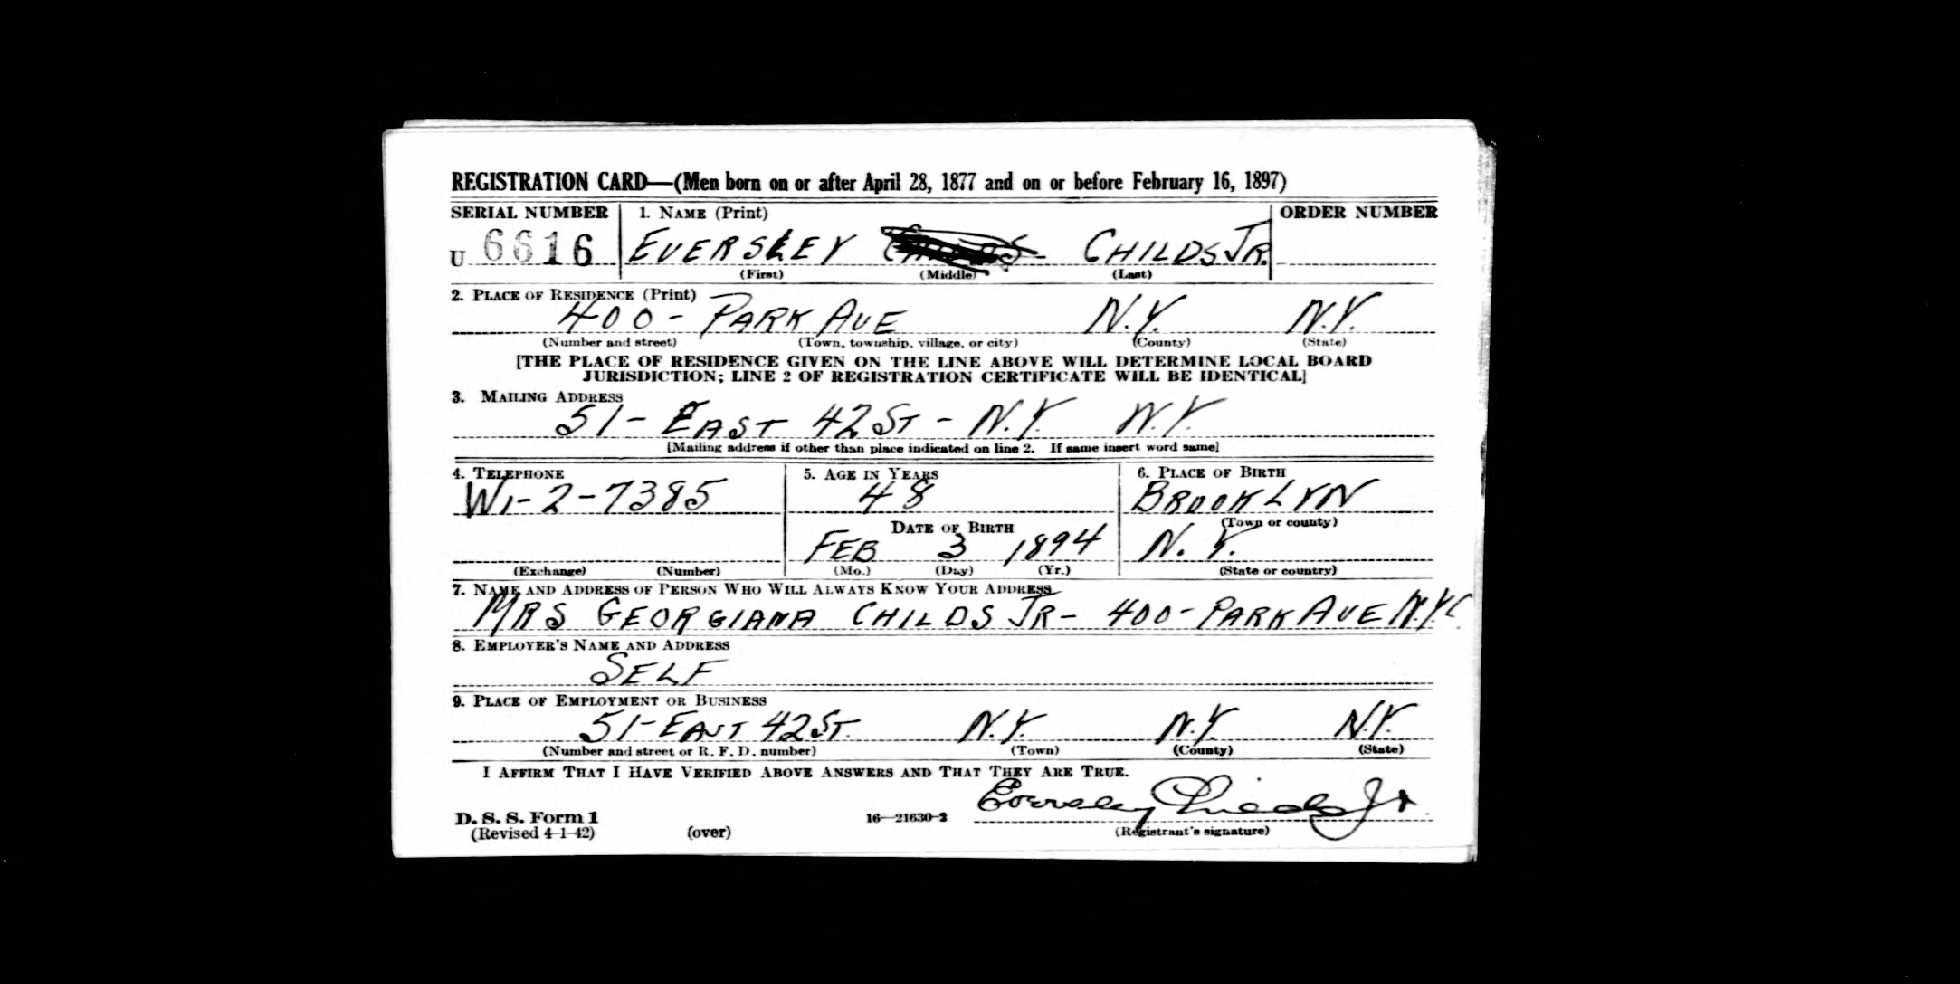 REGISTRATION CARD—(Men born on or after April 28, 1877 and on or before February 16, 1897)
SERIAL NUMBER 1. NAME (Print) ORDER NUMBER
U 6616 EVERSLEY CHILDS JR.
(First) (Middle) (Last)
2. PLACE OF RESIDENCE (Print)
400- PARK AVE N.Y. N.Y.
(Number and street) (Town, township, village, or city) (County) (State)
[THE PLACE OF RESIDENCE GIVEN ON THE LINE ABOVE WILL DETERMINE LOCAL BOARD
JURISDICTION; LINE 2 OF REGISTRATION CERTIFICATE WILL BE IDENTICAL]
3. MAILING ADDRESS
51- EAST 42 ST - N.Y. N.Y.
[Mailing address if other than place indicated on line 2. If same insert word same]
4. TELEPHONE 5. AGE IN YEARS 6. PLACE OF BIRTH
WI-2-7385 48 BROOKLYN
DATE OF BIRTH (Town or county)
FEB 3 1894 N.Y.
(Exchange) (Number) (Mo.) (Day) (Yr.) (State or country)
7. NAME AND ADDRESS OF PERSON WHO WILL ALWAYS KNOW YOUR ADDRESS
MRS GEORGIANA CHILDS JR- 400- PARK AVE N.Y.C.
8. EMPLOYER'S NAME AND ADDRESS
SELF
9. PLACE OF EMPLOYMENT OR BUSINESS
51- EAST 42 ST. N.Y. N.Y. N.Y.
(Number and street or R. F. D. number) (Town) (County) (State)
I AFFIRM THAT I HAVE VERIFIED ABOVE ANSWERS AND THAT THEY ARE TRUE.
Eversley Childs Jr
D. S. S. Form 1 16—21630-2
(Revised 4-1-42) (over) (Registrant's signature)